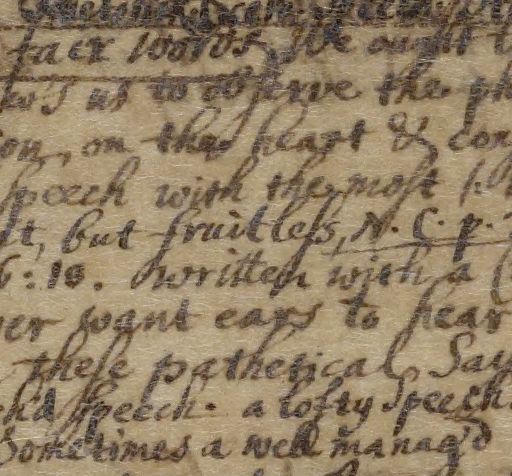 tack words, We ought t
w's us to observe the ph
ion, on the heart & con
speech with the most s
st, but fruitless, N. C. p.
6: 10. written with a
ver want ears to hear
these pathetical Say
ch'd speech. a lofty speech.
Sometimes a well manag'd